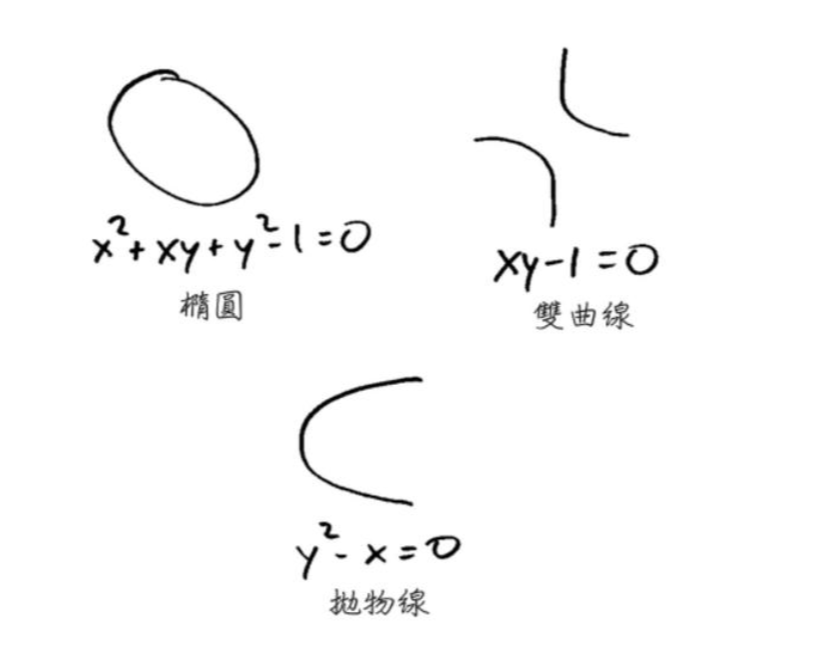 x²+xy+y²-1=0
橢圓
xy-1=0
雙曲線
y²-x=0
拋物線